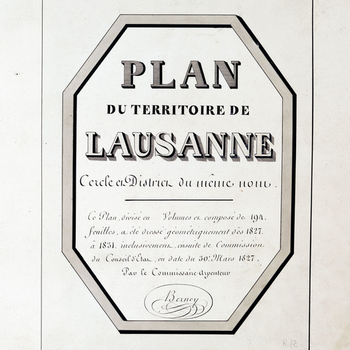 PLAN
DU TERRITOIRE DE
LAUSANNE
Cercle et District du même nom.
Ce Plan, divisé en Volumes et composé de 194.
feuilles, a été dressé géométriquement dès 1827.
à 1831. inclusivement, ensuite de Commission
du Conseil d'Etat, en date du 30.e Mars 1827.
Par le Commissaire-Arpenteur
Berney